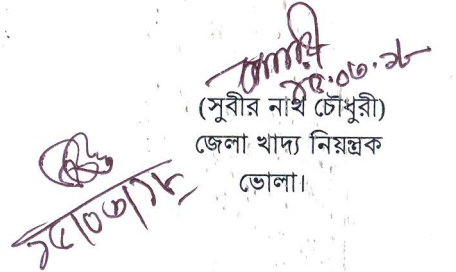 ২৫.০৩.১৮
(সুবীর নাথ চৌধুরী)
জেলা খাদ্য নিয়ন্ত্রক
ভোলা।
২৫/০৩/১৮